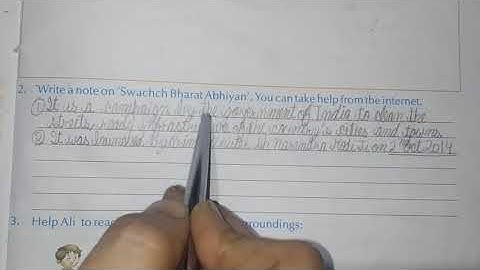 2. Write a note on 'Swachch Bharat Abhiyan'. You can take help from the internet.
① It is a campaign by the government of India to clean the
streets, roads infrastructure of the country's cities and towns
② It was launched by prime minister Sh Narendra Modi on 2nd Oct 2014
3. Help Ali to reac roundings: